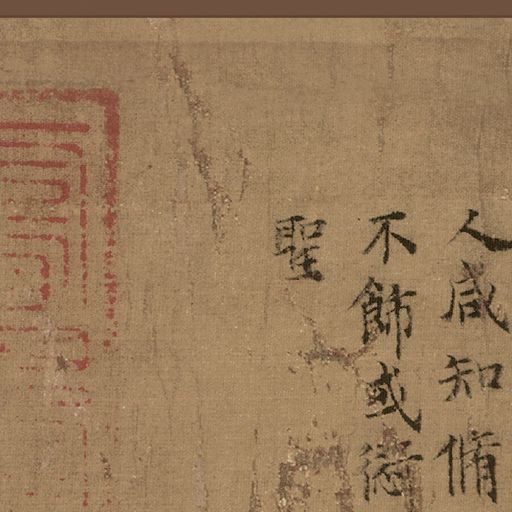 人咸知脩
不飾或愆
聖